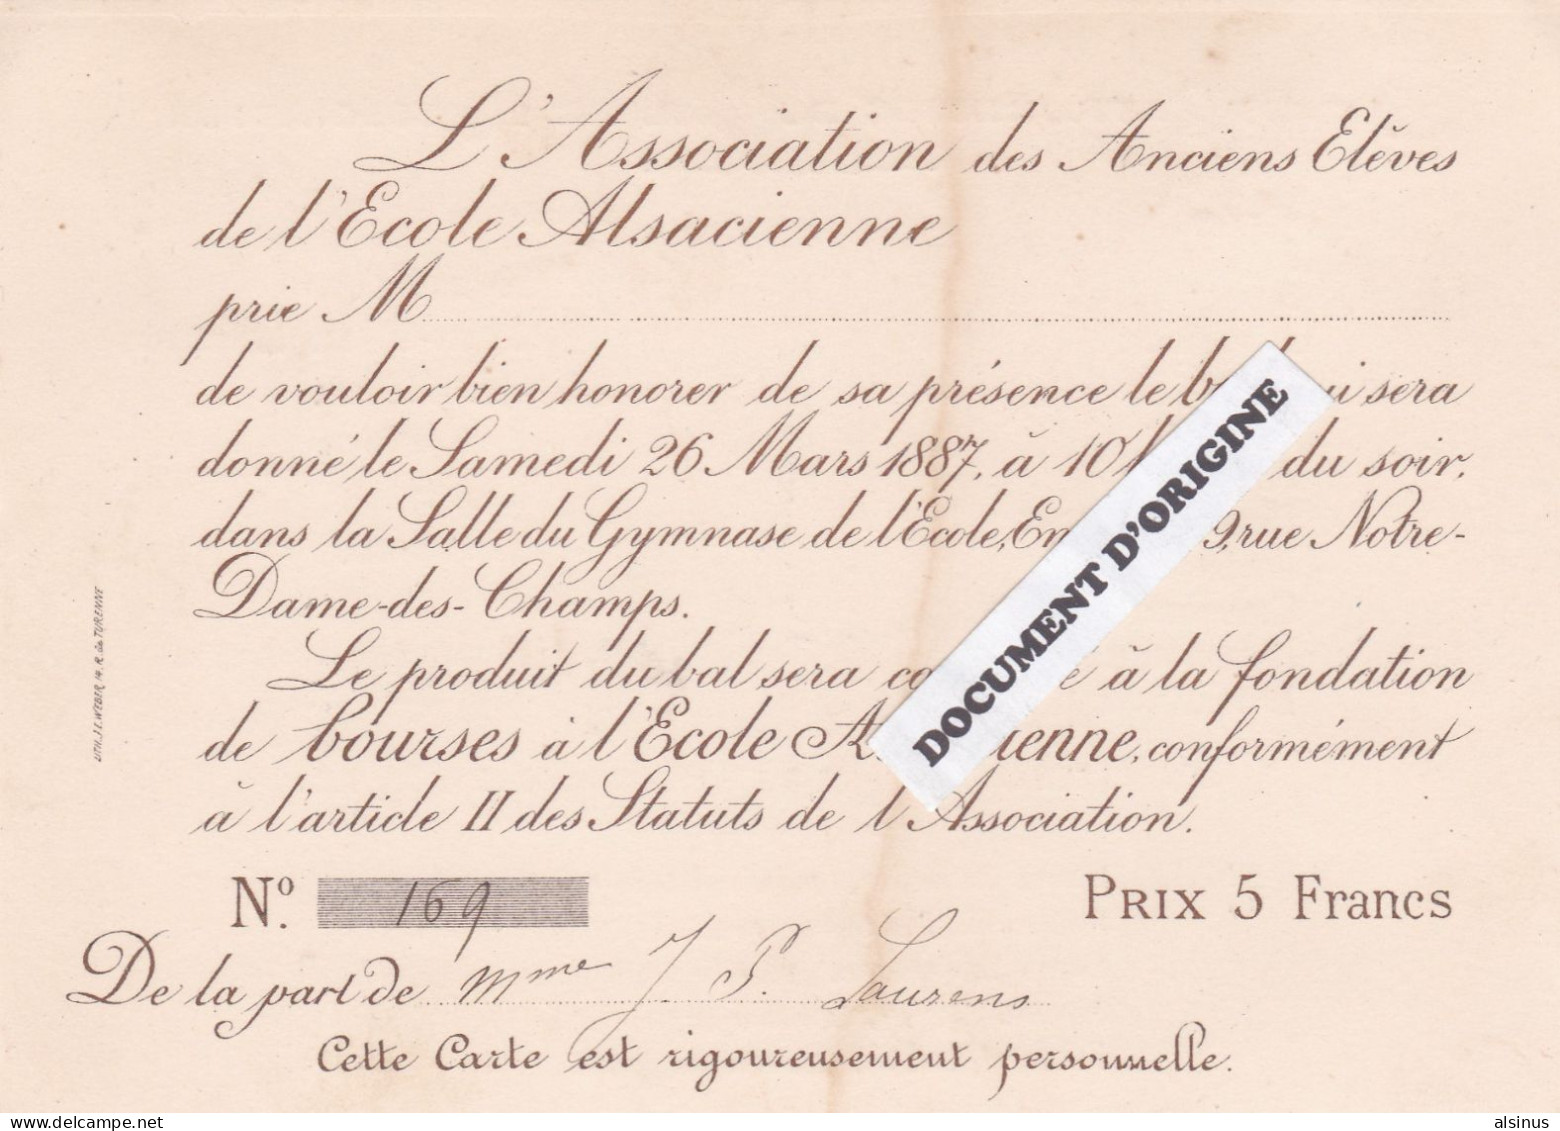 L'Association des Anciens Elèves
de l'Ecole Alsacienne
prie M
de vouloir bien honorer de sa présence le sera
donné le Samedi 26 Mars 1887, à 10 du soir,
dans la Salle du Gymnase de l'Ecole, 9, rue Notre-
Dame-des-Champs.
Le produit du bal sera à la fondation
de bourses à l'Ecole conformément
à l'article II des Statuts de l'Association.
N° 169
PRIX 5 Francs
De la part de Mme J. P. Laurens
Cette Carte est rigoureusement personnelle.
LITH. J.E. WEBER, 14. R. de TURENNE
DOCUMENT D'ORIGINE
www.delcampe.net
alsinus